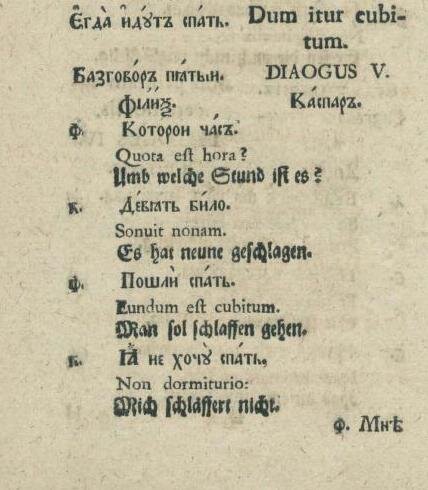 Е҆гда̀ и҆дꙋ́тъ спа́ть. Dum itur cubi-
tum.
Базгово́ръ пѧ́тыи. DIAOGUS V.
Ка́спаръ.
ф. Которои ча́съ.
Quota eſt hora?
Umb welche Stund iſt es?
к. Де́вѧть би́ло.
Sonuit nonam.
Es hat neune geſchlagen.
ф. Пошлѝ спа́ть.
Eundum eſt cubitum.
Man ſol ſchlaffen gehen.
к. Ꙗ҆̀ не хочꙋ̀ спа́ть,
Non dormiturio:
Mich ſchläffert nicht.
ф. Мнѣ